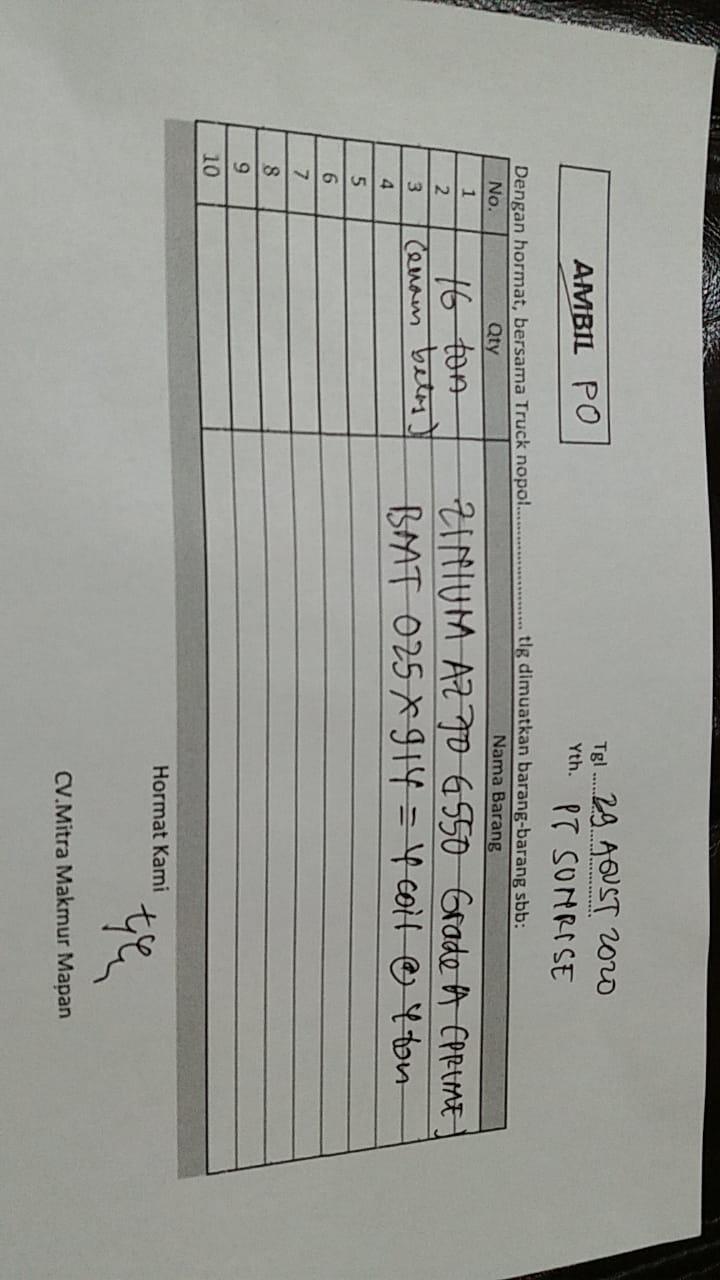 AMBIL PO
Tgl ........ 29 AGUST 2020
Yth. PT SUNRISE
Dengan hormat, bersama Truck nopol........................... tlg dimuatkan barang-barang sbb:
No. Qty Nama Barang
1 16 ton ZINIUM AZ 70 G550 Grade A (PRIME)
2
3 (enam belas) BMT 025 x 914 = 4 coil @ 4 ton
4
5
6
7
8
9
10
Hormat Kami
CV.Mitra Makmur Mapan